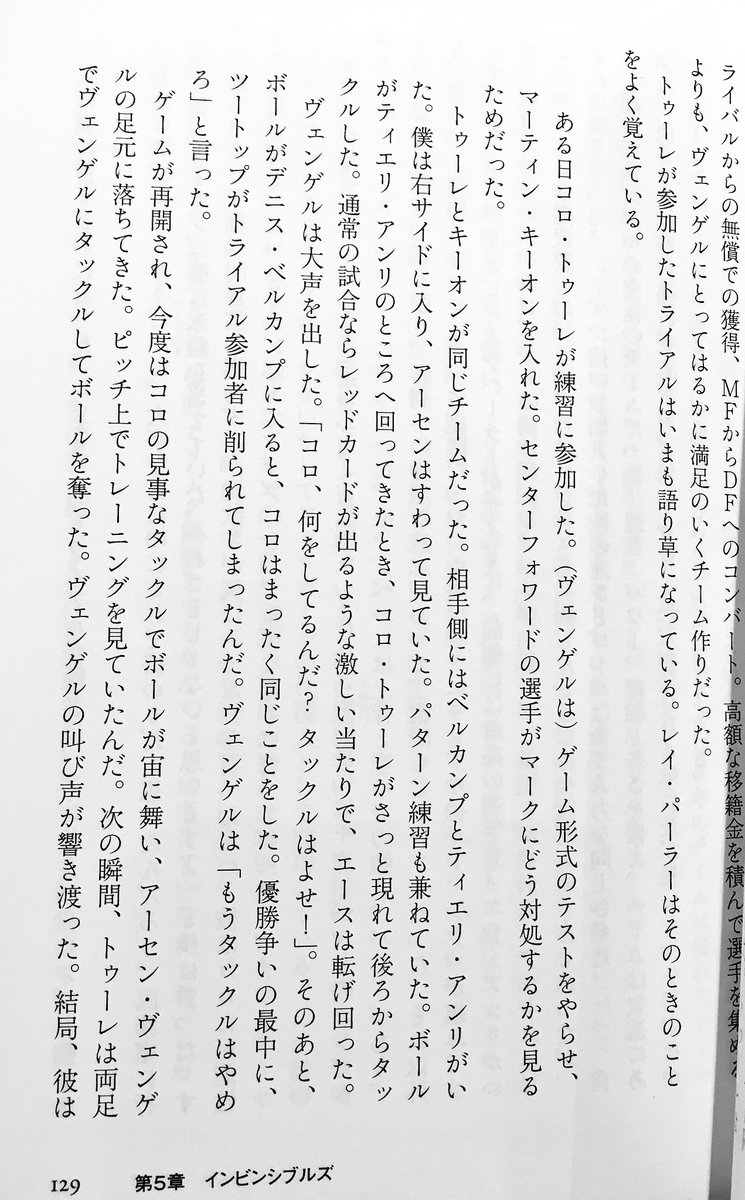 ライバルからの無償での獲得、MFからDFへのコンバート。高額な移籍金を積んで選手を集める
よりも、ヴェンゲルにとってはるかに満足のいくチーム作りだった。
トゥーレが参加したトライアルはいまも語り草になっている。レイ・パーラーはそのときのこと
をよく覚えている。
ある日コロ・トゥーレが練習に参加した。（ヴェンゲルは）ゲーム形式のテストをやらせ、
マーティン・キーオンを入れた。センターフォワードの選手がマークにどう対処するかを見る
ためだった。
トゥーレとキーオンが同じチームだった。相手側にはベルカンプとティエリ・アンリがい
た。僕は右サイドに入り、アーセンはすわって見ていた。パターン練習も兼ねていた。ボール
がティエリ・アンリのところへ回ってきたとき、コロ・トゥーレがさっと現れて後ろからタッ
クルした。通常の試合ならレッドカードが出るような激しい当たりで、エースは転げ回った。
ヴェンゲルは大声を出した。「コロ、何をしてるんだ？ タックルはよせ！」。そのあと、
ボールがデニス・ベルカンプに入ると、コロはまったく同じことをした。優勝争いの最中に、
ツートップがトライアル参加者に削られてしまったんだ。ヴェンゲルは「もうタックルはやめ
ろ」と言った。
ゲームが再開され、今度はコロの見事なタックルでボールが宙に舞い、アーセン・ヴェンゲ
ルの足元に落ちてきた。ピッチ上でトレーニングを見ていたんだ。次の瞬間、トゥーレは両足
でヴェンゲルにタックルしてボールを奪った。ヴェンゲルの叫び声が響き渡った。結局、彼は
129 第5章 インビンシブルズ